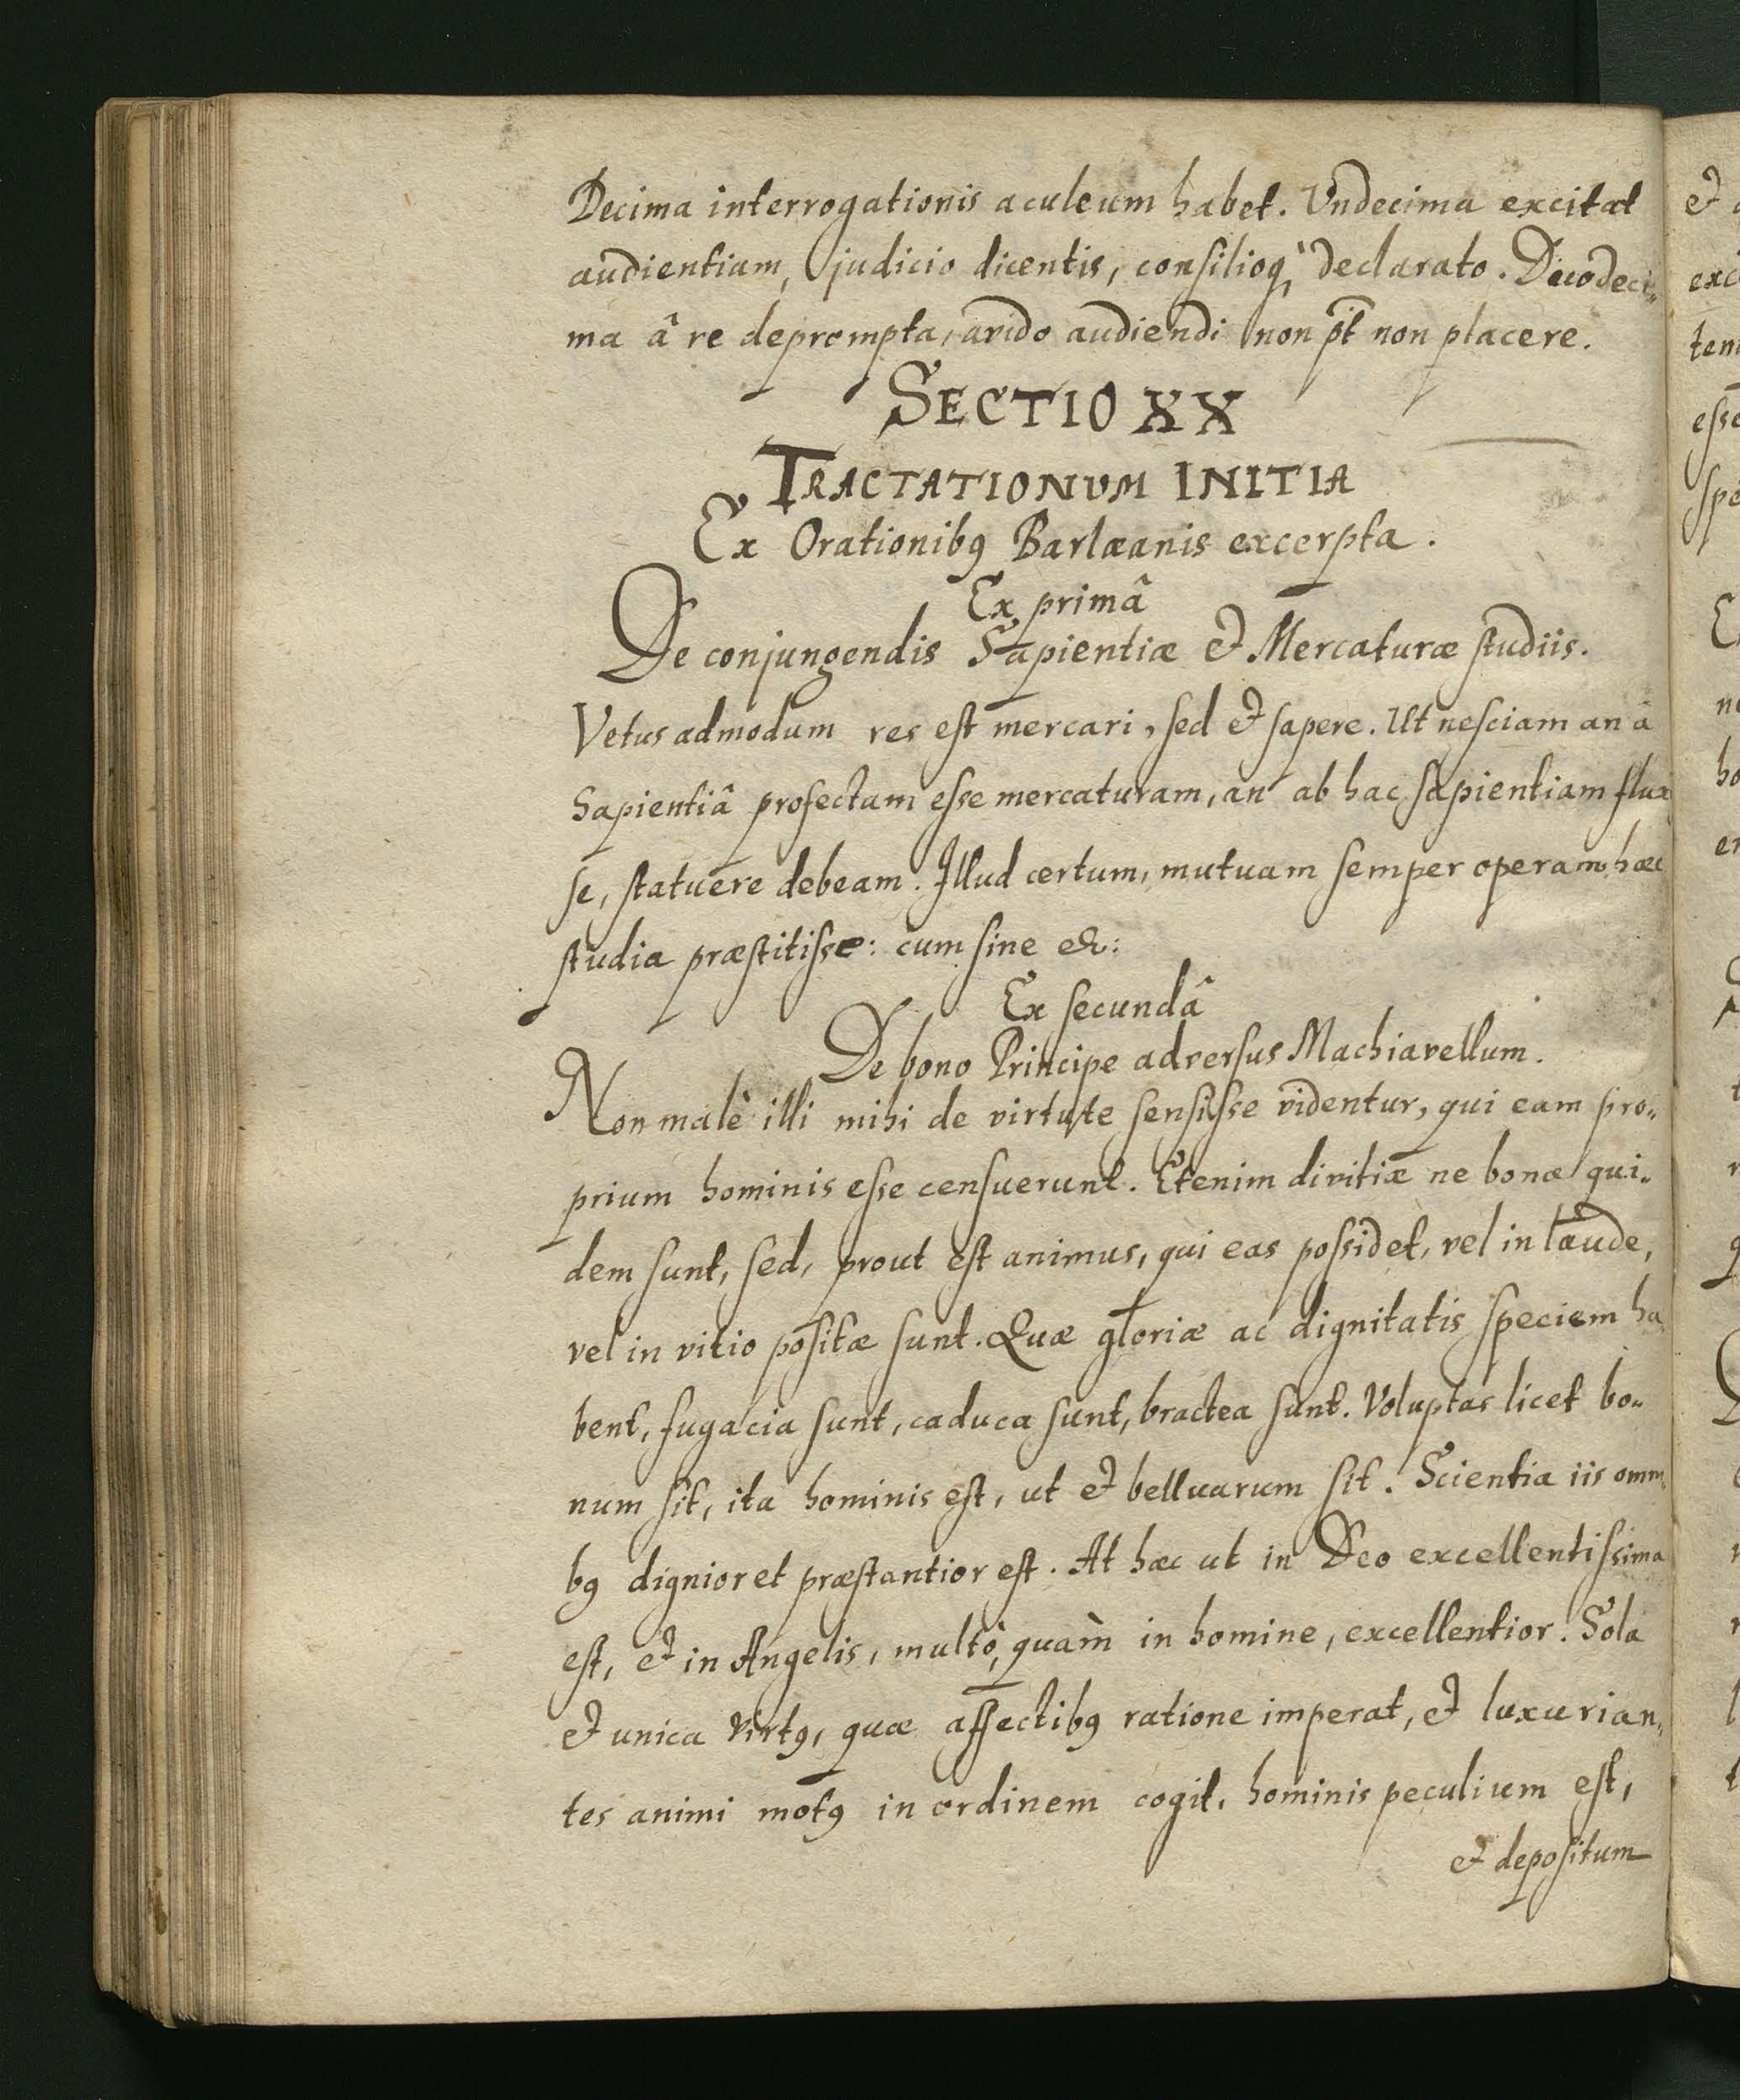 Decima interrogationis aculeum habet. Vndecima excitat
audientiam, judicio dicentis, consilioq; declarato. Duodeci„
ma â re deprompta, avido audiendi non pt̄ non placere.
SECTIO XX
TRACTATIONVM INITIA
Ex Orationibꝰ Barlæanis excerpta.
Ex primâ
De conjungendis Sapientiæ & Mercaturæ studiis.
Vetus admodum res est mercari, sed & sapere. Ut nesciam an â
Sapientiâ profectam esse mercaturam, an ab hac sapientiam flux
se, statuere debeam. Illud certum, mutuam semper operam hæc
studia præstitisse: cum sine &c:
Ex secundâ
De bono Principe adversus Machiavellum.
Non malè illi mihi de virtute sensisse videntur, qui eam pro„
prium hominis esse censuerunt. Etenim divitiæ ne bonæ qui„
dem sunt, sed, prout est animus, qui eas possidet, vel in laude,
vel in vitio positæ sunt. Quæ gloriæ ac dignitatis speciem ha
bent, fugacia sunt, caduca sunt, bractea sunt. Voluptas licet bo„
num sit, ita hominis est, ut & belluarum sit. Scientia iis omni„
bꝰ dignior et præstantior est. At hæc ut in Deo excellentissima
est, & in Angelis, multò, quàm in homine, excellentior. Sola
& unica virtꝰ, quæ affectibꝰ ratione imperat, & luxurian„
tes animi motꝰ in ordinem cogit, hominis peculium est,
& depositum